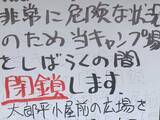 非常に危険な状
のため当キャンプ場
をしばらくの間
閉鎖します。
太郎平小屋前の広場を